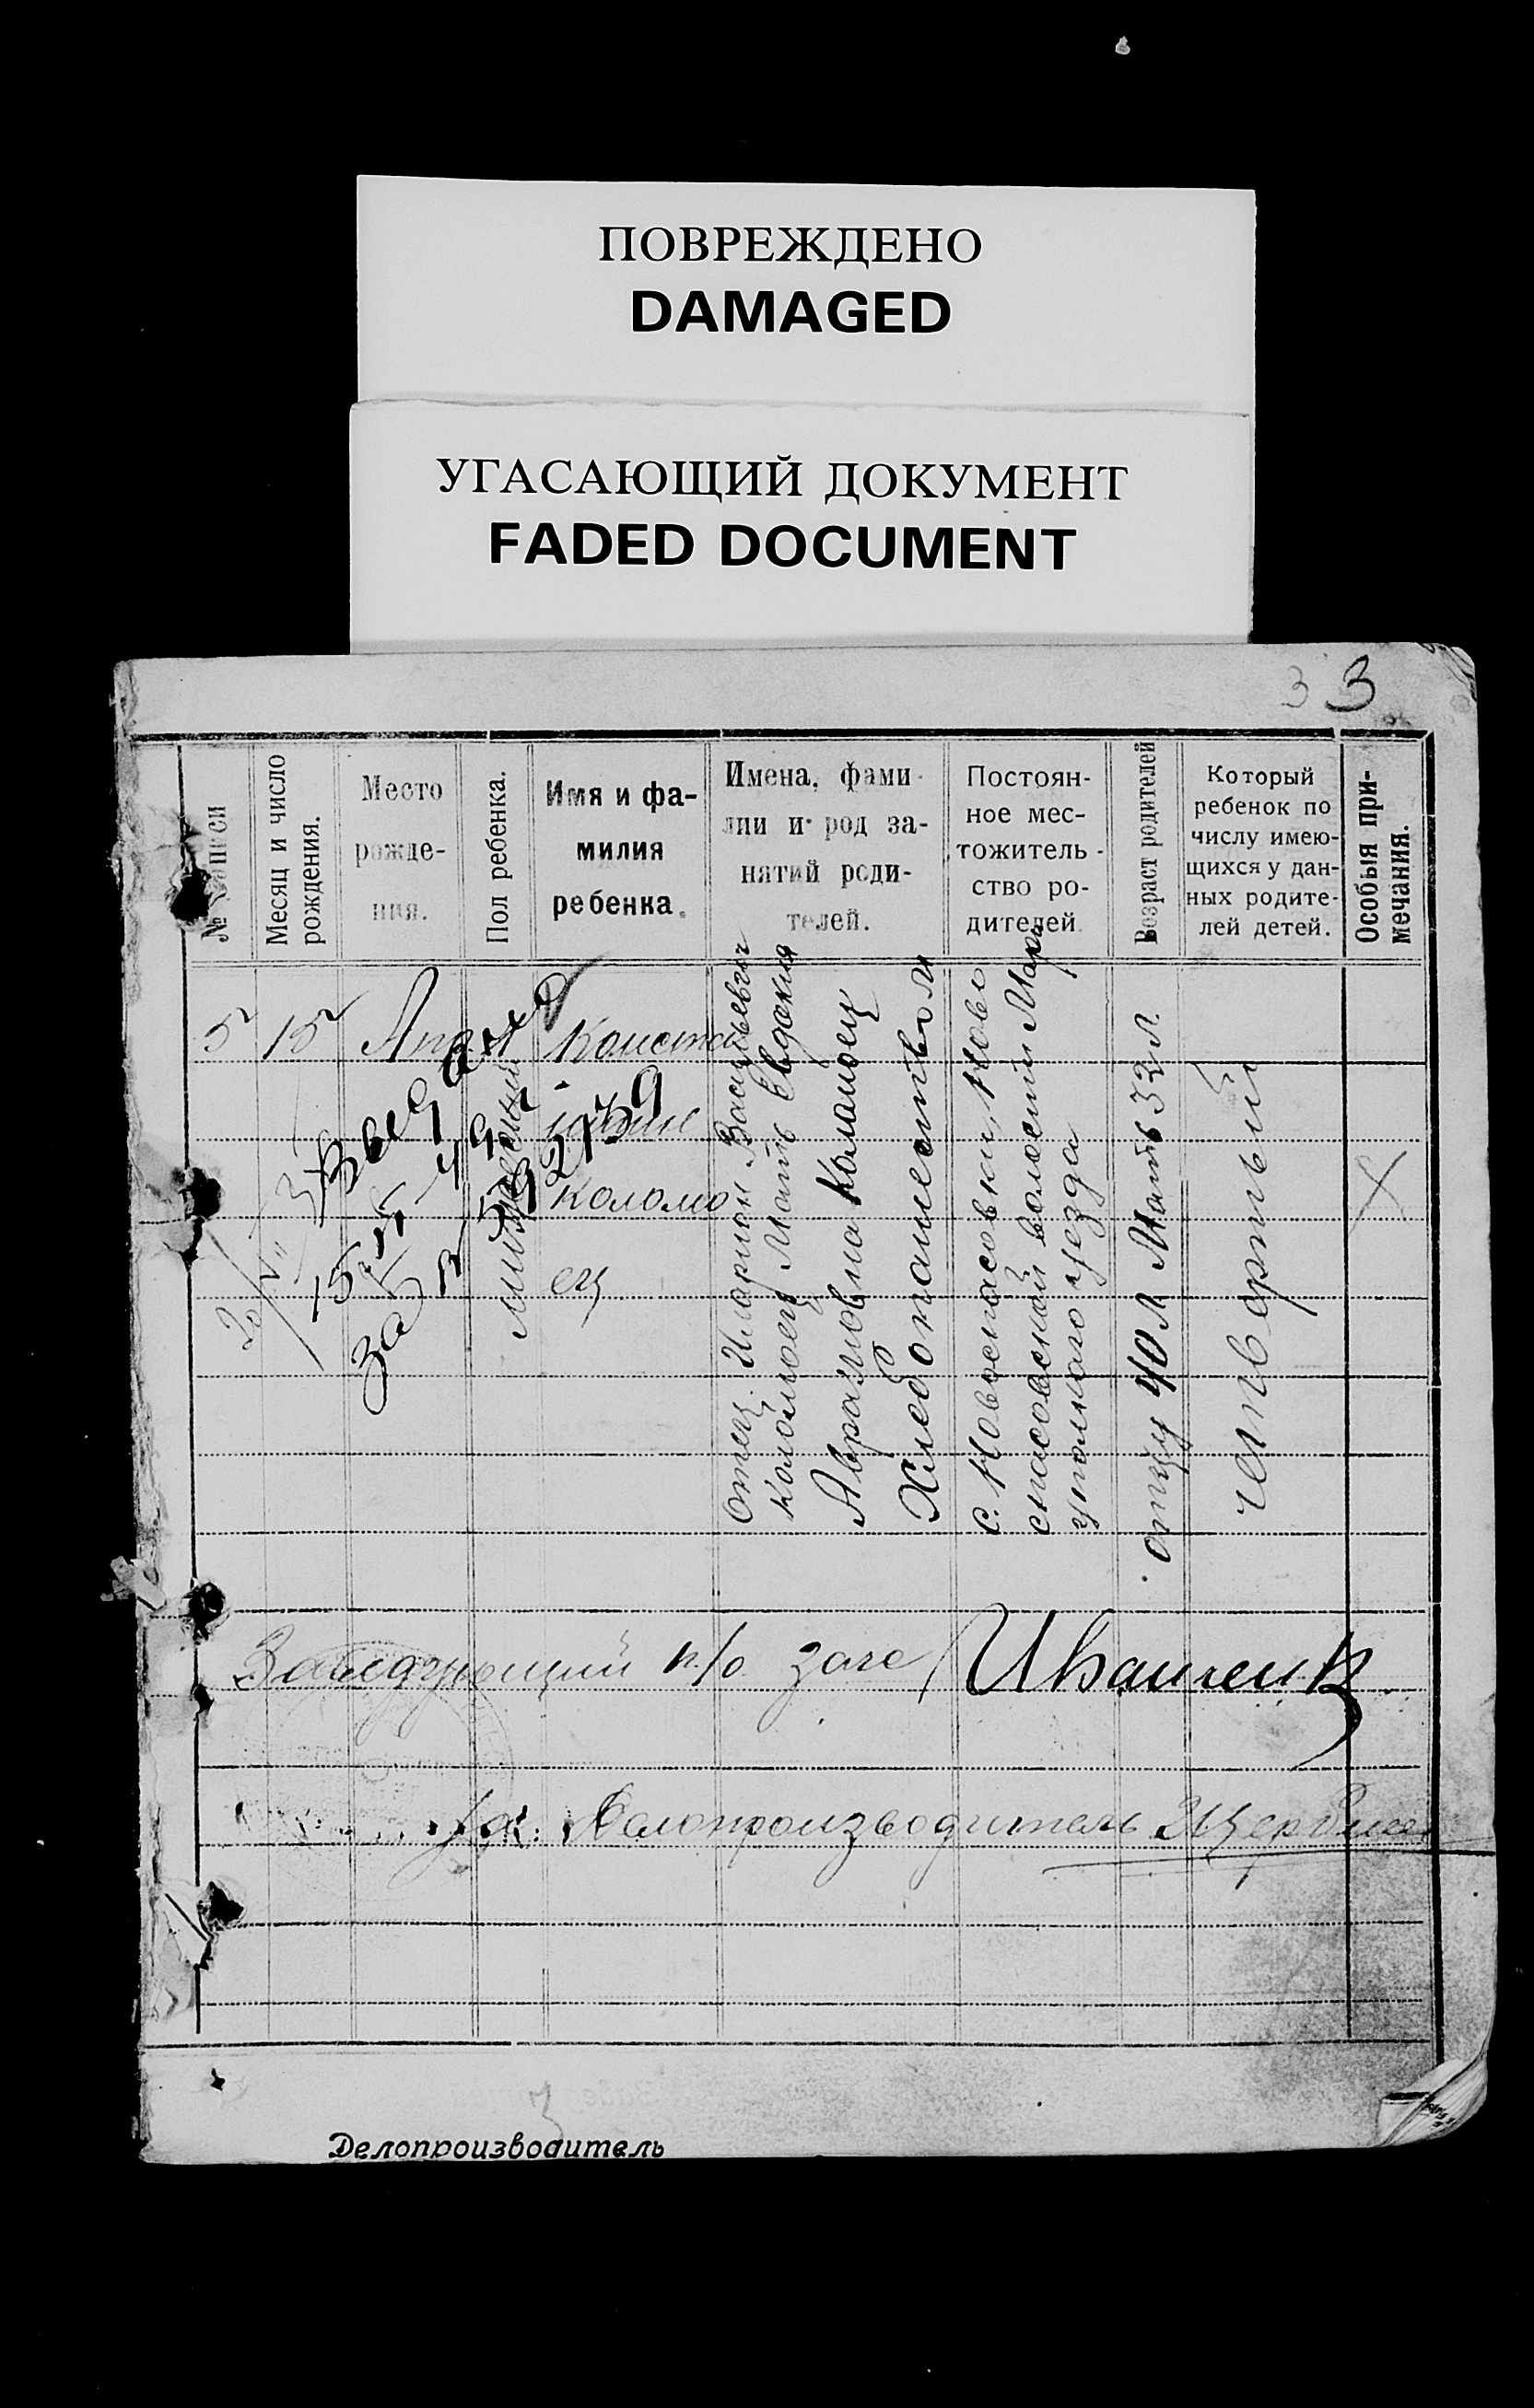 ПОВРЕЖДЕНО
DAMAGED
УГАСАЮЩИЙ ДОКУМЕНТ
FADED DOCUMENT
3 3
№ записи
Месяц и число
рождения.
Место
рожде-
ния.
Пол ребенка.
Имя и фа-
милия
ребенка.
Имена, фами-
лии и род за-
нятий роди-
телей.
Постоян-
ное мес-
тожитель-
ство ро-
дителей
Возраст родителей
Который
ребенок по
числу имею-
щихся у дан-
ных родите-
лей детей.
Особыя при-
мечания.
5
15
Констан
Коломо
ец
Отец Иларион Васильевич
Коломоец Мать Евдокия
Аврамовна Коломоец
Хлебопашество м
с. Новоспасовки, Ново
спасовской волости Мари
упольного уезда
отцу 40 л Мать 32 л.
четвертый
Заведующий п/о загс Иващенк
Делопроизводитель
Делопроизводитель